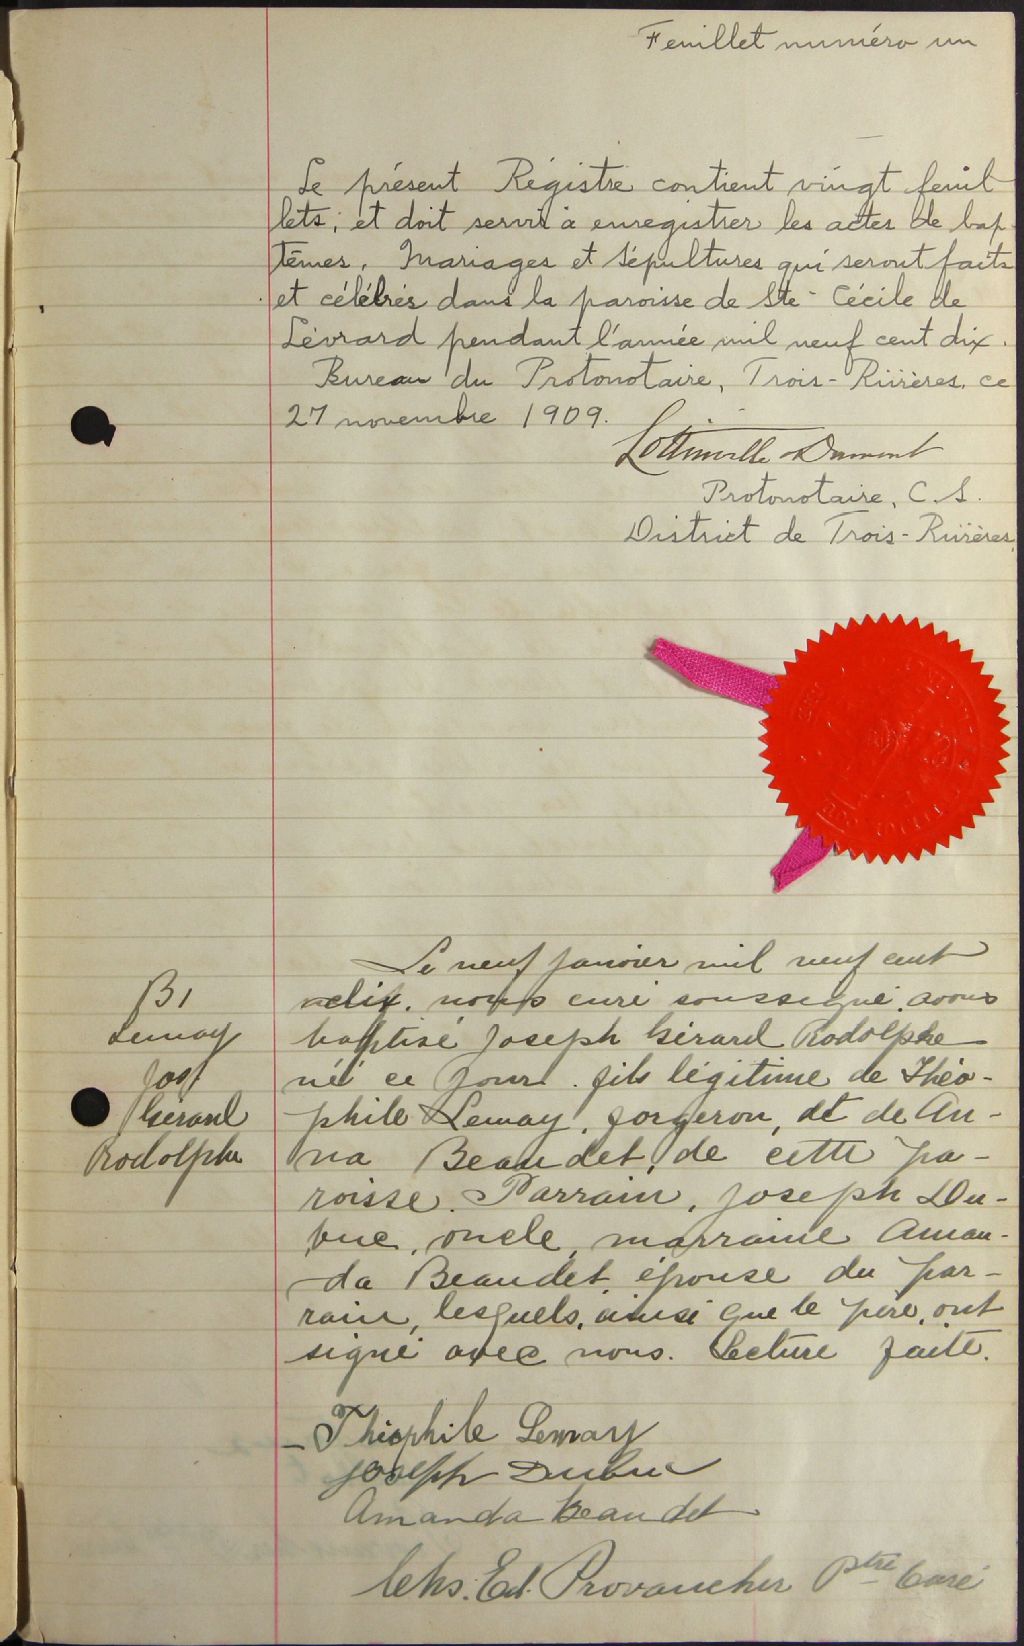 Feuillet numéro un
Le présent Régistre contient vingt feuil
lets; et doit servir à enregistrer les actes de bap
têmes, Mariages et Sépultures qui seront faits
et célébrés dans la paroisse de Ste-Cécile de
Lévrard pendant l'année mil neuf cent dix.
Bureau du Protonotaire, Trois-Rivières, ce
27 novembre 1909.
Lottinville & Dumont
Protonotaire, C.S.
District de Trois-Rivières,
Le neuf janvier mil neuf cent
dix, nous curé soussigné avons
baptisé Joseph Gérard Rodolphe
né ce jour, fils légitime de Théo-
phile Lemay, forgeron, et de An-
na Beaudet, de cette pa-
roisse. Parrain, Joseph Du-
buc, oncle, marraine Aman-
da Beaudet, épouse du par-
rain, lesquels, ainsi que le père, ont
signé avec nous. Lecture faite.
B1
Lemay
Jos
Gérard
Rodolphe
Théophile Lemay
Joseph Dubuc
Amanda Beaudet
Chs. Ed. Provancher Ptre Curé